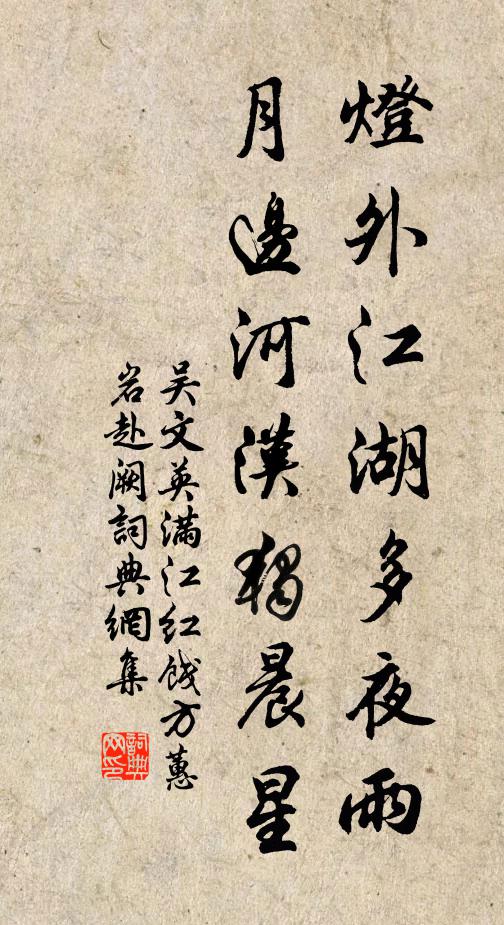 燈外江湖多夜雨
月邊河漢獨晨星
吴文英滿江紅餞方蕙
岩赴闕詞典網集
詞典
网印